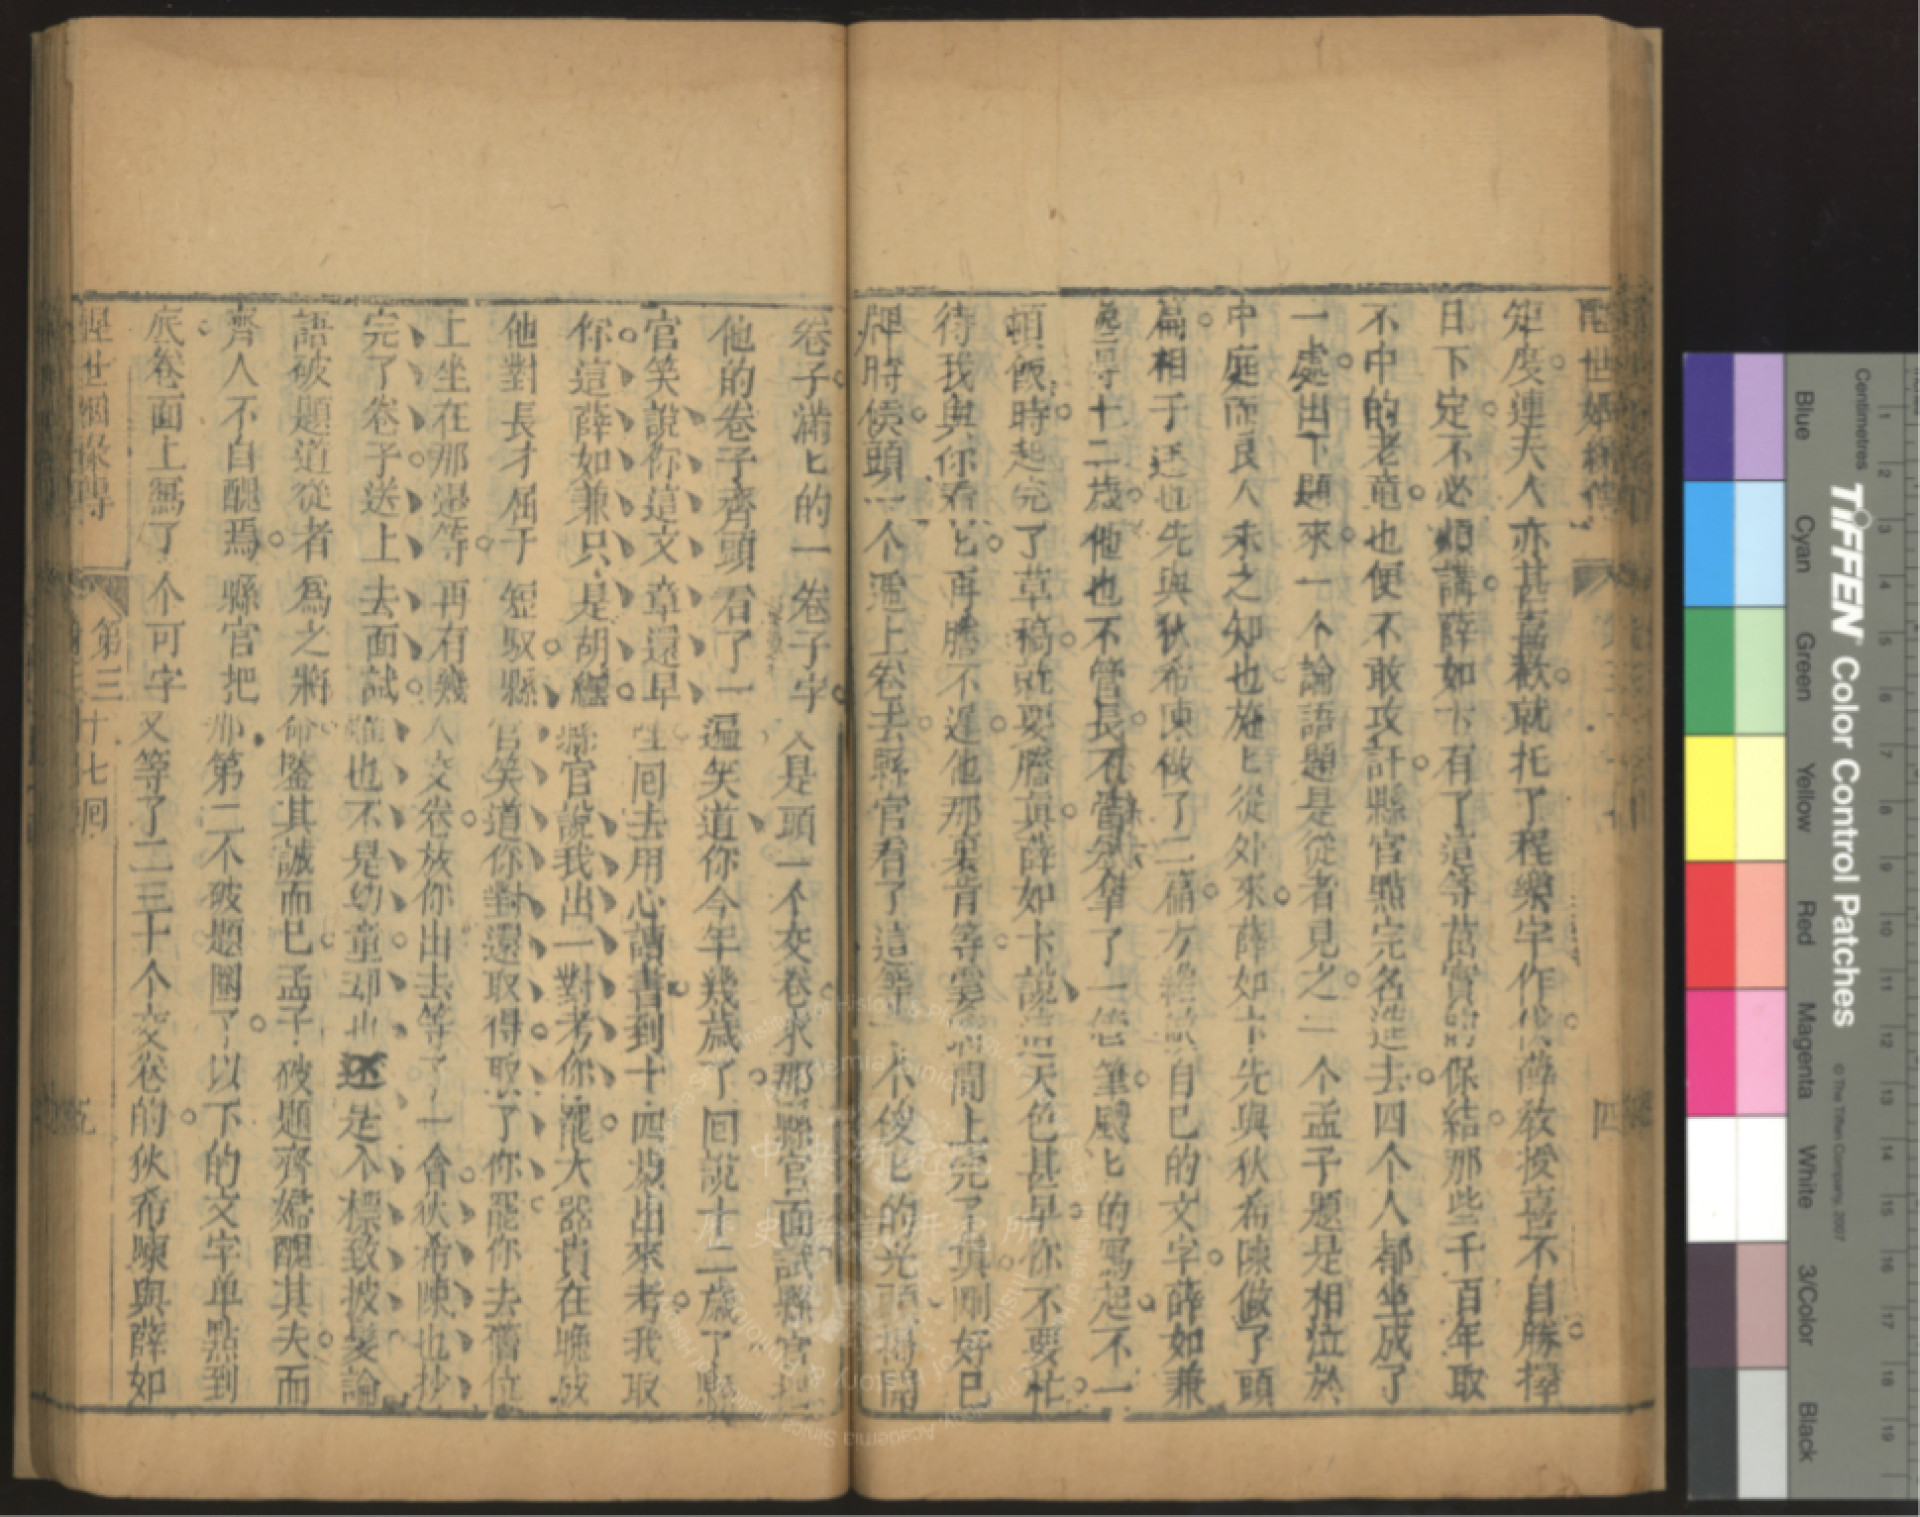 醒世姻緣傳
矩度連夫人亦甚喜歡就托了程樂宇作伐薛敎授喜不自勝擇
日下定不必煩講薛如卞有了這等茁實的保結那些千百年取
不中的老童也便不敢攻訐縣官點完名進去四个人都坐成了
一處出下題來一个論語題是從者見之一个孟子題是相泣於
中庭而良人未之知也施七從外來薛如卞先與狄希陳做了頭
篇相于廷也先與狄希陳做了二篇方纔做自己的文字薛如兼
纔十二歲他也不管長不管拿了一管筆颼七的寫起不一
頓飯時起完了草稿就要謄眞薛如卞說這天色甚早你不要忙
待我與你看七再謄不遲他那裏肯等霎時間上完了眞剛好巳
牌時候頭一个遞上卷去縣官看了這等一个俊七的光頭揭開
卷子滿七的一卷子字又是頭一个交卷求那縣官面試縣官把
他的卷子齊頭看了一遍笑道你今年幾歲了囘說十二歲了縣
官笑說你這文章還早哩囘去用心讀書到十四歲出來考我取
你這薛如兼只是胡纏縣官說我出一對考你罷大器貴在晚成
他對長才屈于短馭縣官笑道你對還取得取了你罷你去舊位
上坐在那邊等再有幾人交卷放你出去等了一會狄希陳也抄
完了卷子送上去面試縣也不是幼童却也還是个標致披髮論
語破題道從者爲之將命鑒其誠而已孟子破題齊婦醜其夫而
齊人不自醜焉縣官把那第二个破題圈了以下的文字单點到
底卷面上寫了个可字又等了二三十个交卷的狄希陳與薛如
醒世姻緣傳
第三十七囘